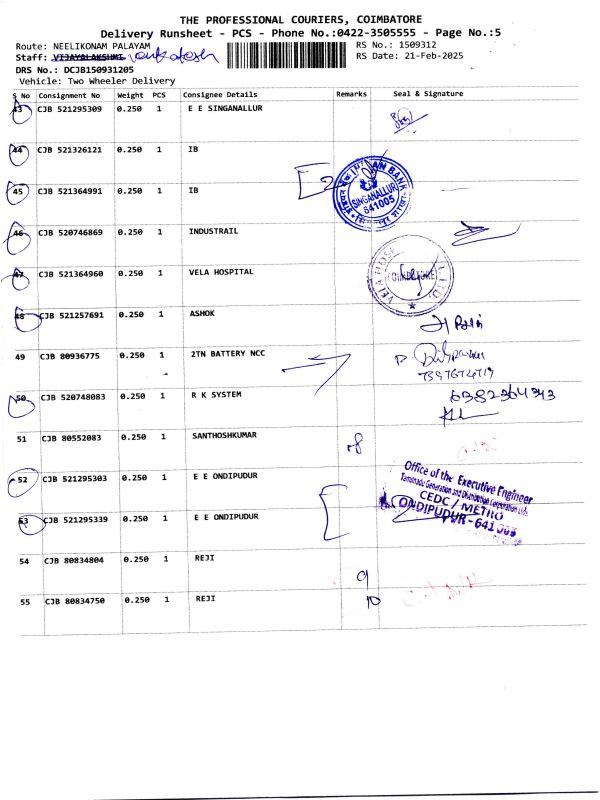 THE PROFESSIONAL COURIERS, COIMBATORE
Delivery Runsheet - PCS - Phone No.:0422-3505555 - Page No.:5
Route: NEELIKONAM PALAYAM
RS No.: 1509312
Staff: VIJAYALAKSHMI venkatesh
RS Date: 21-Feb-2025
DRS No.: DCJB150931205
Vehicle: Two Wheeler Delivery
S No Consignment No Weight PCS Consignee Details Remarks Seal & Signature
43 CJB 521295309 0.250 1 E E SINGANALLUR
44 CJB 521326121 0.250 1 IB
45 CJB 521364991 0.250 1 IB 2
SINGANALLUR
641005
46 CJB 520746869 0.250 1 INDUSTRAIL
47 CJB 521364960 0.250 1 VELA HOSPITAL
VELA HOSP
COIMBATORE
48 CJB 521257691 0.250 1 ASHOK
49 CJB 80936775 0.250 1 2TN BATTERY NCC
50 CJB 520748083 0.250 1 R K SYSTEM
6382364343
51 CJB 80552083 0.250 1 SANTHOSHKUMAR 8
52 CJB 521295303 0.250 1 E E ONDIPUDUR
Office of the Executive Engineer
Tamilnadu Generation and Distribution Corporation Ltd.
CEDC / METRO
53 CJB 521295339 0.250 1 E E ONDIPUDUR
ONDIPUDUR-641
54 CJB 80834804 0.250 1 REJI 9
55 CJB 80834750 0.250 1 REJI 10